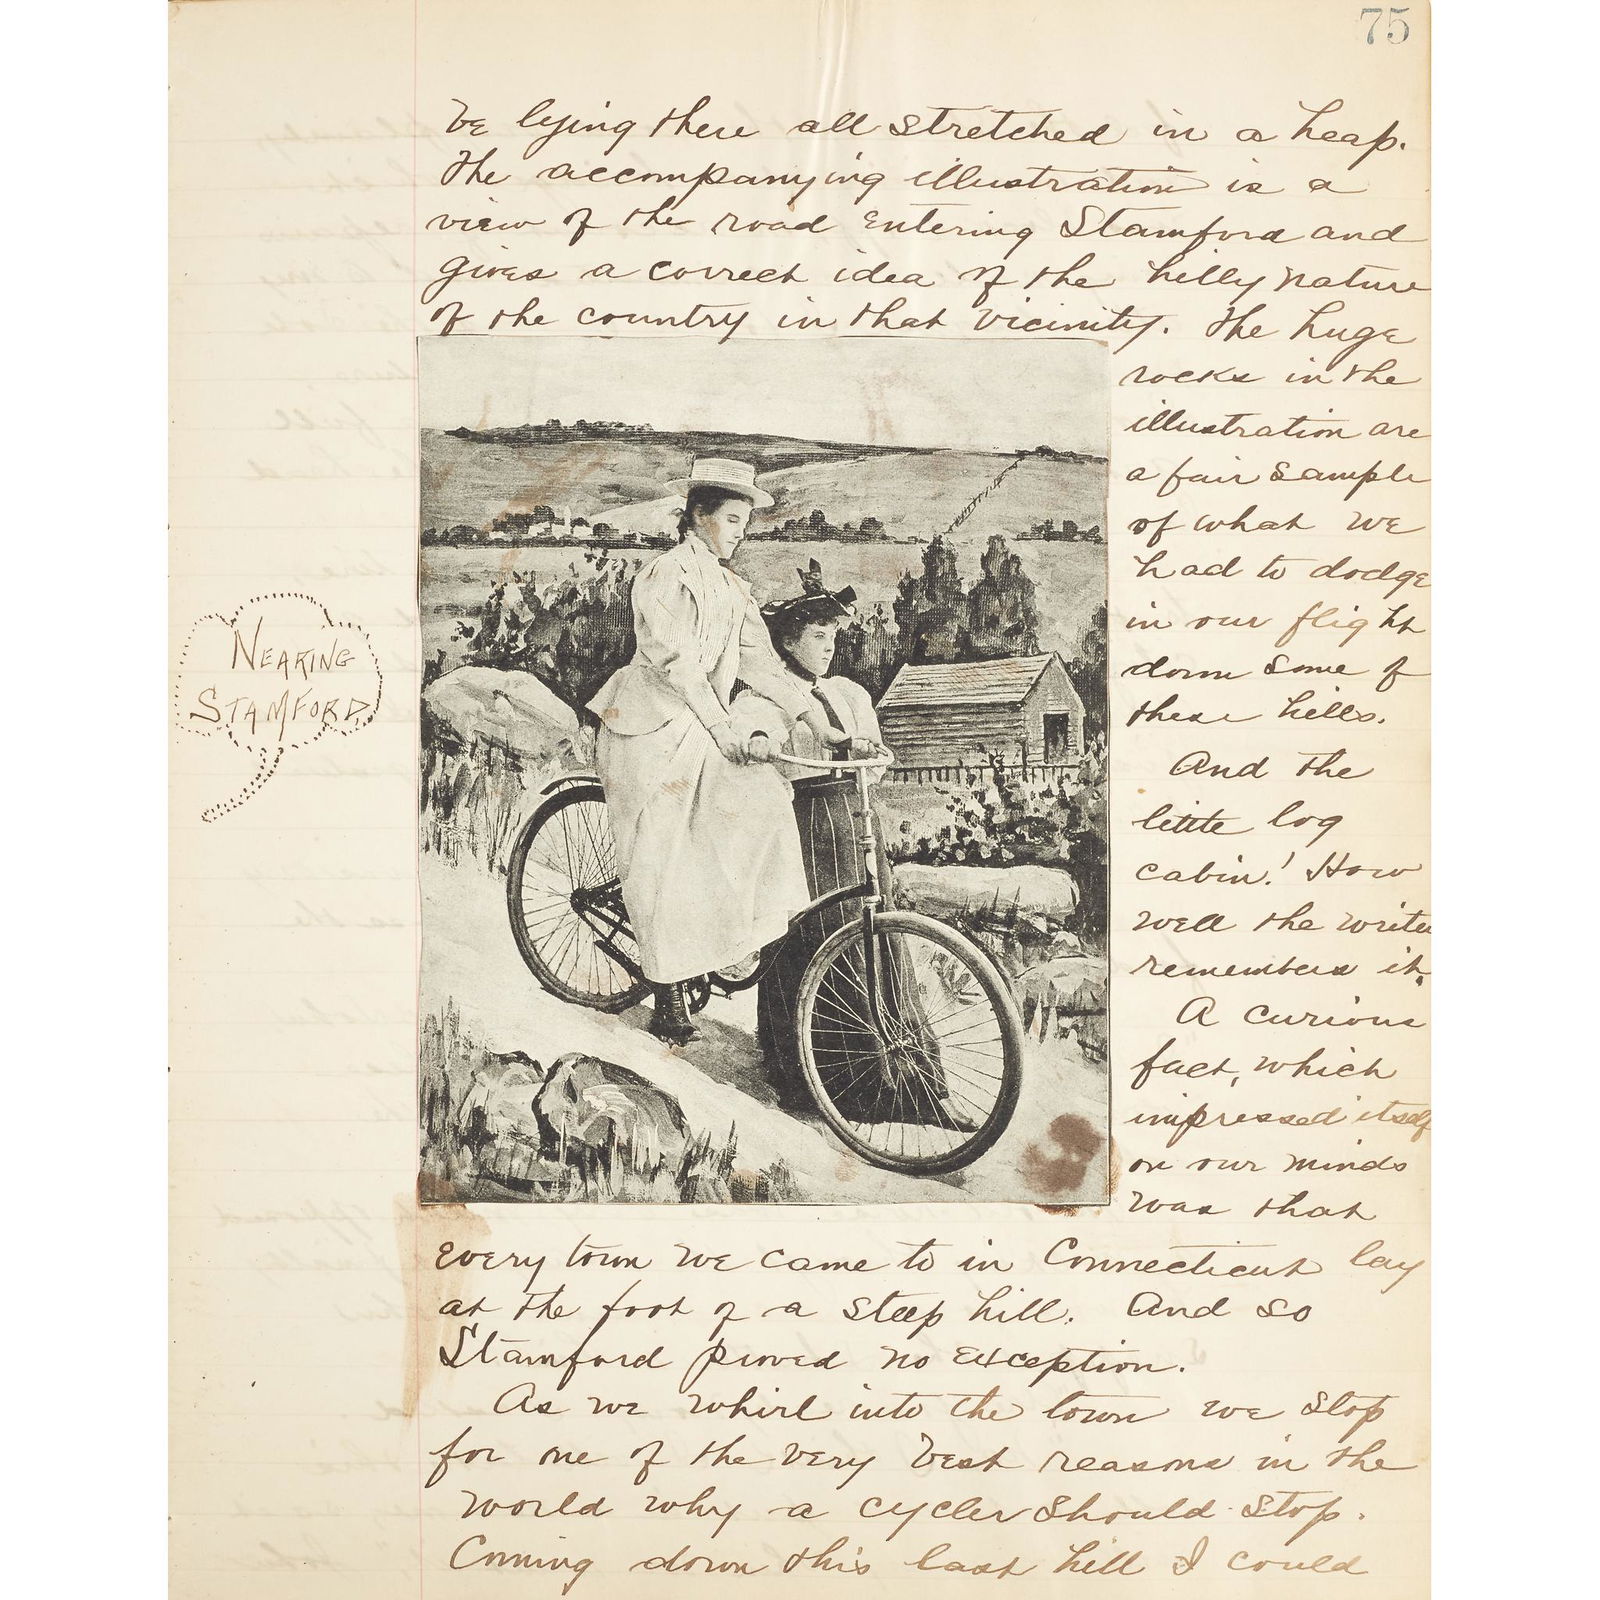 75
be lying there all stretched in a heap.
The accompanying illustration is a
view of the road entering Stamford and
gives a correct idea of the hilly nature
of the country in that vicinity. The huge
rocks in the
illustration are
a fair sample
of what we
had to dodge
in our flight
down some of
these hills.
NEARING
STAMFORD
And the
little log
cabin! How
well the writer
remembers it.
A curious
fact, which
impressed itself
on our minds
was that
every town we came to in Connecticut lay
at the foot of a steep hill. And so
Stamford proved no exception.
As we whirl into the town we stop
for one of the very best reasons in the
world why a cycler should stop.
Coming down this last hill I could